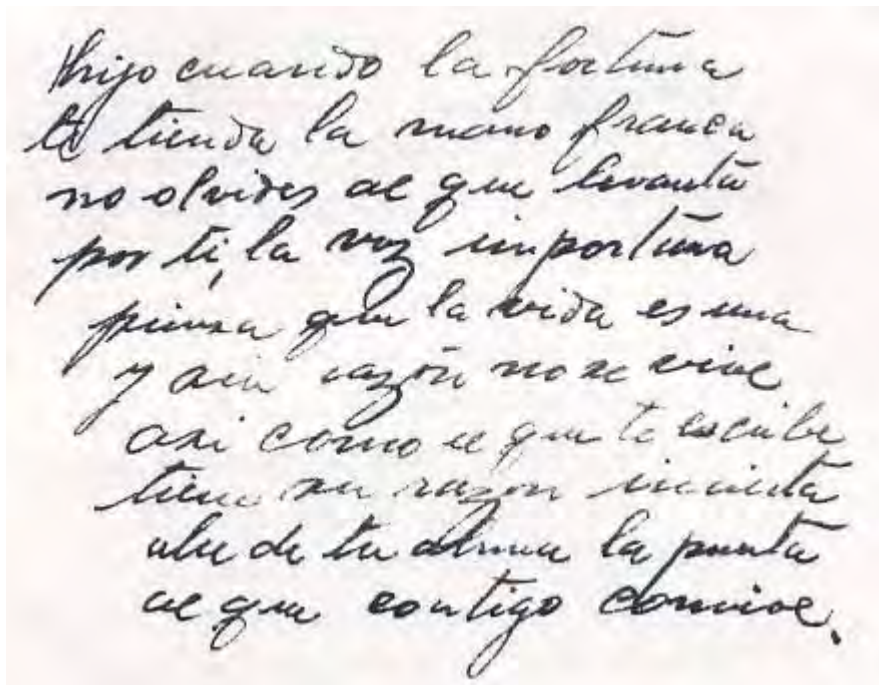 hijo cuando la fortuna
te tienda la mano franca
no olvides al que levanta
por ti, la voz importuna
piensa que la vida es una
y sin razón no se vive
asi como el que te escribe
tiene su razon incierta
abre de tu alma la puerta
al que contigo convive.